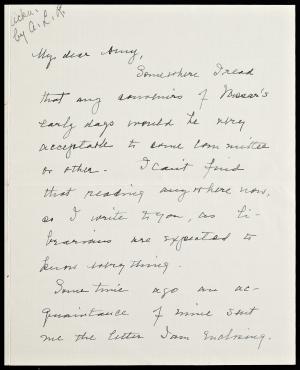 ackn.
by A. L. R.
My dear Amy,
Somewhere I read
that any souvenirs of Vassar's
early days would be very
acceptable to some committee
or other. I can't find
that reading anywhere now,
so I write to you, as li-
brarians are expected to
know everything.
Some time ago an ac-
quaintance of mine sent
me the letter I am enclosing.